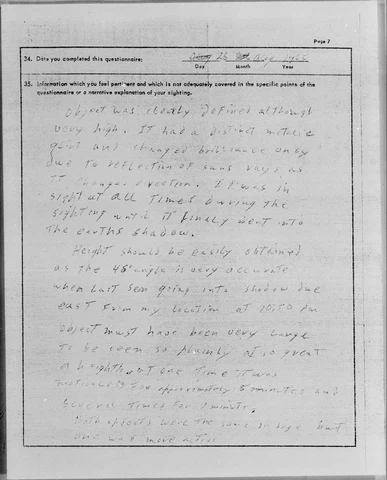 Page 7
34. Date you completed this questionnaire: 26 Aug
Day Month Year
35. Information which you feel pertinent and which is not adequately covered in the specific points of the
questionnaire or a narrative explanation of your sighting.
Object was clearly defined although
very high. It had a distinct metalic
glint and changed brilliance only
due to reflection of suns rays as
it changed direction. It was in
sight at all times during the
sighting until it finaly went into
the earths shadow.
Height should be easily obtained
as the 45° angle is very accurate
when last seen going into shadow due
east from my location at 10:50 PM
Object must have been very large
to be seen so plainly at so great
a heighth. at one time it was
motionless for approximately 5 minutes and
several times for 1 minute.
Both objects were the same in size but
one was more active